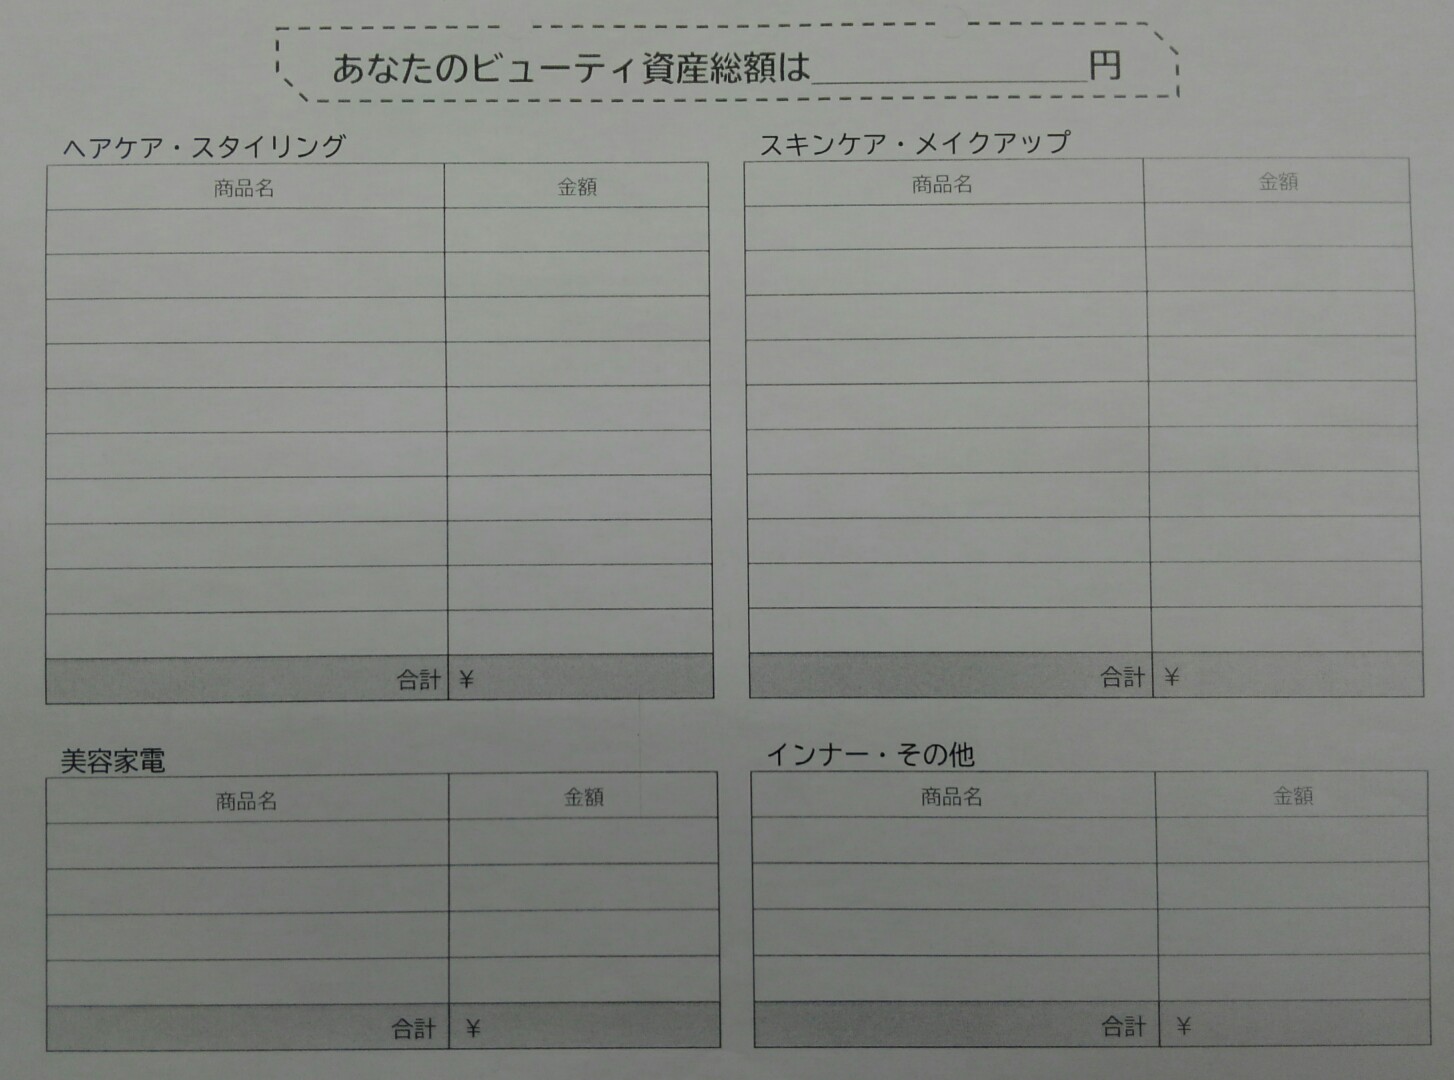 あなたのビューティ資産総額は＿＿＿＿＿＿＿＿円
ヘアケア・スタイリング
商品名 金額
合計 ¥
スキンケア・メイクアップ
商品名 金額
合計 ¥
美容家電
商品名 金額
合計 ¥
インナー・その他
商品名 金額
合計 ¥